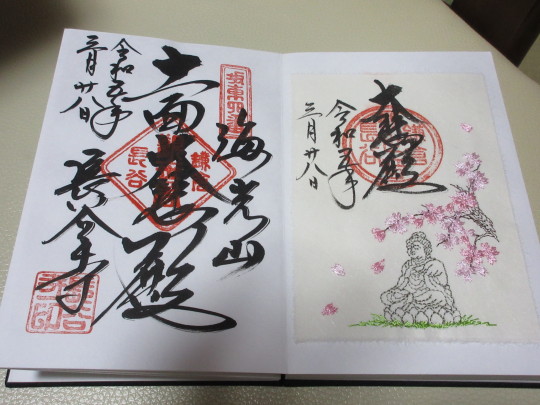 大悲殿
令和五年
三月廿八日
鎌倉
長谷
坂東四番
海光山
十一面大悲殿
鎌倉
長谷
長谷寺
令和五年
三月廿八日